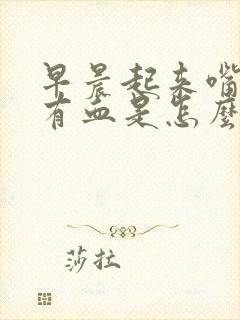 早晨起来嘴
有血是怎麼
莎拉